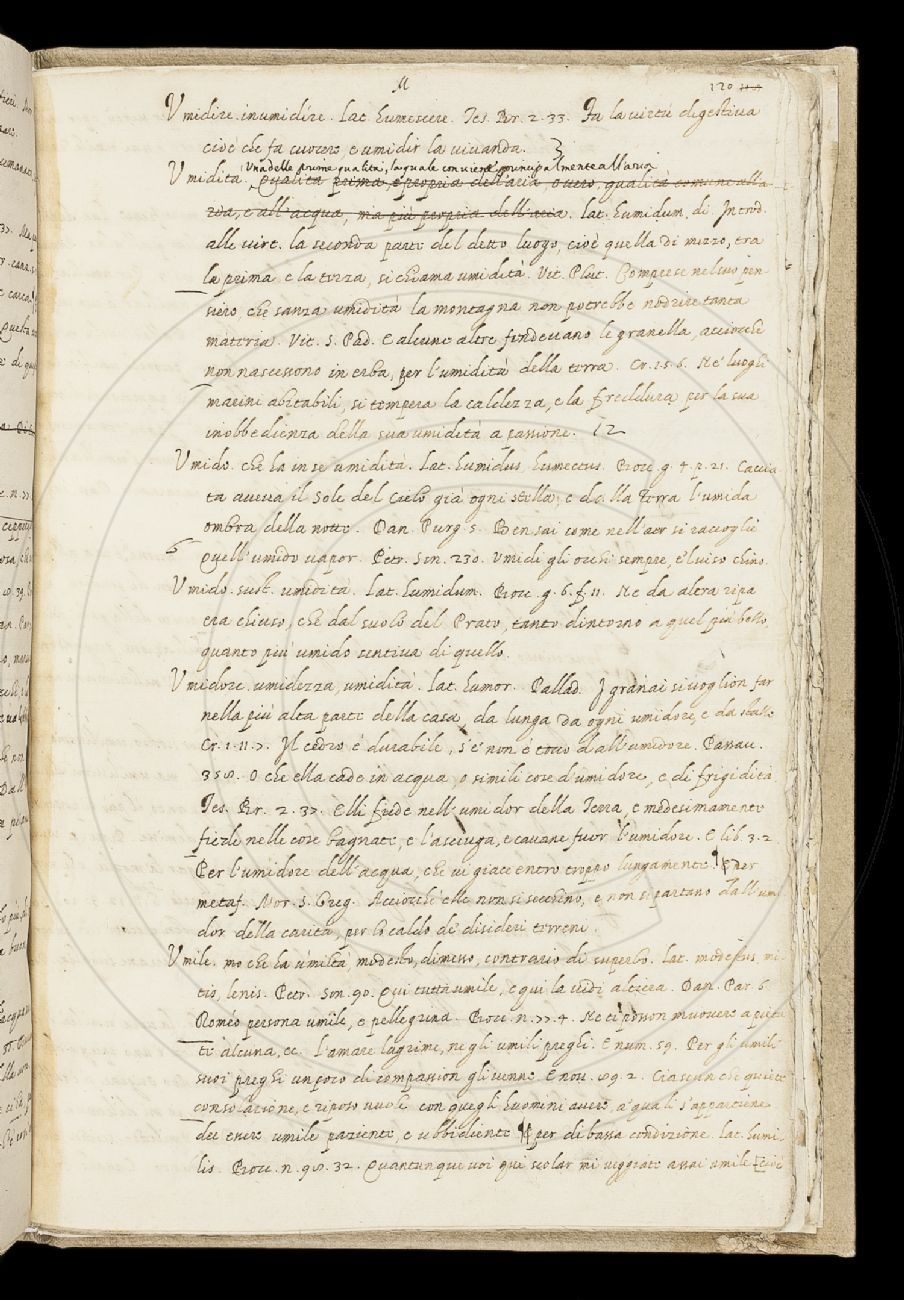 M
120
Vmidire. inumidire. Lat. humescere. Tes. Br. 2. 33. Fa la virtù digestiua
cioè che fa cuocere, e umidir la viuanda.
Vna delle prime qualità, la quale conuiene principalmente all'aria
Vmidità. Qualità prima, e propria dell'aria ouero, qualità comune all'a
ria, e all'acqua, ma più propria dell'aria. Lat. humidum, di. Introd.
alle virt. la seconda parte del detto luogo, cioè quella di mezzo, tra
la prima e la terza, si chiama umidità. Vit. Plut. Comprese nel suo pen
siero, che sanza umidità la montagna non potrebbe nodrire tanta
materia. Vit. S. Pad. E alcune altre fendeuano le granella, acciocchè
non nascessono in erba, per l'umidità della terra. Cr. 1. 5. 6. Ne' luoghi
marini abitabili, si tempera la caldezza, e la freddura per la sua
inobbedienza della sua umidità a passione.
Vmido. che ha in se umidità. Lat. humidus, humectus. Bocc. g. 4. p. 21. Caccia
ta aueua il Sole del Cielo già ogni stella, e dalla Terra l'umida
ombra della notte. Dan. Purg. 5. Ben sai come nell'aer si raccoglie
Quell'umido uapor. Petr. Son. 230. Vmidi gli occhi sempre, e 'l uiso chino.
Vmido. sust. umidità. Lat. humidum. Bocc. g. 6. f. 11. Ne da altra ripa
era chiuso, che dal suolo del Prato, tanto dintorno a quel più bello,
quanto più umido sentiua di quello.
Vmidore. umidezza, umidità. Lat. humor. Pallad. I granai si uoglion far
nella più alta parte della casa, da lunga da ogni umidore, e da stallo
Cr. 1. 11. 7. Il cedro è durabile, s'e' non è tocco dall'umidore. Passau.
358. O che ella cade in acqua, o simili cose d'umidore, e di frigidità
Tes. Br. 2. 37. Elli fiede nell'umidor della Terra, e medesimamente
fierle nelle cose bagnate, e l'asciuga, e cauane fuor l'umidore. E lib. 3. 2
Per l'umidore dell'acqua, che ui giace entro troppo lungamente. Per
metaf. Mor. S. Greg. Acciocchè elle non si secchino, e non si partano dall'umi
dor della carità, per lo caldo de' disideri terreni.
Vmile. che ha umiltà, modesto, dimesso, contrario di superbo. Lat. modestus, mi
tis, lenis. Petr. Son. 90. Qui tutta umile, e qui la uidi altera. Dan. Par. 6
Roméo persona umile, e pellegrina. Bocc. n. 77. 4. Ne ti posson muouere a pieta
te alcuna, ec. l'amare lagrime, ne gli umili preghi. E num. 59. Per gli umili
suoi preghi un poco di compassion gli uenne. E nou. 89. 2. Ciascun che quiete
consolazione, e riposo uuole con quegli huomini auere, a' quali s'appartiene
dee essere umile paziente, e ubbidiente per di bassa condizione. Lat. humi
lis. Bocc. n. 98. 32. Quantunque uoi qui scolar mi ueggiate assai umile